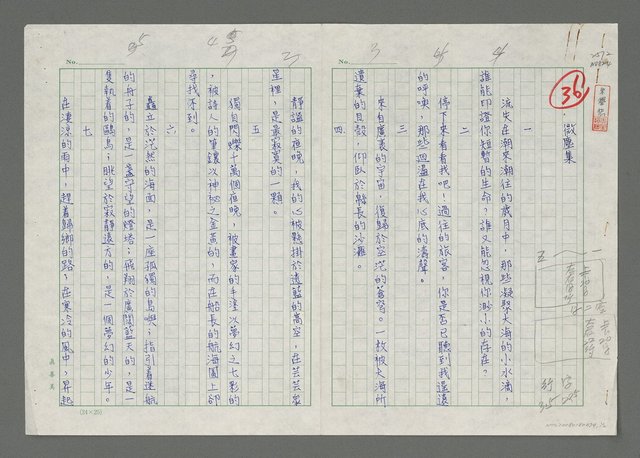 微塵集
一
流失在潮來潮往的歲月中，那些凝聚大海的小水滴，
誰能印證你短暫的生命？誰又能忽視你渺小的存在？
二
停下來看看我吧！過往的旅客，你是否已聽到我遙遠
的呼喚，那些迴盪在我心底的濤聲。
三
來自廣袤的宇宙，復歸於空茫的蒼穹。一枚被大海所
遺棄的貝殼，仰臥於綿長的沙灘。
四
靜謐的夜晚，我的心被懸掛於遙藍的高空，在芸芸衆
星裡，是最寂寞的一顆。
五
獨自閃爍千萬個夜晚，被畫家的手塗以夢幻之七彩的
，被詩人的筆鑲以神秘之金黃的，而在船長的航海圖上卻
尋找不到。
六
矗立於茫然的海面，是一座孤獨的島嶼；指引着迷航
的舟子的，是一盞守望的燈塔；飛翔於廣闊藍天的，是一
隻執着的鷗鳥；眺望於寂靜遠方的，是一個夢幻的少年。
七
在淒涼的雨中，趕着歸鄉的路；在寒冷的風中，昇起
36
No.
No.
(24×25)